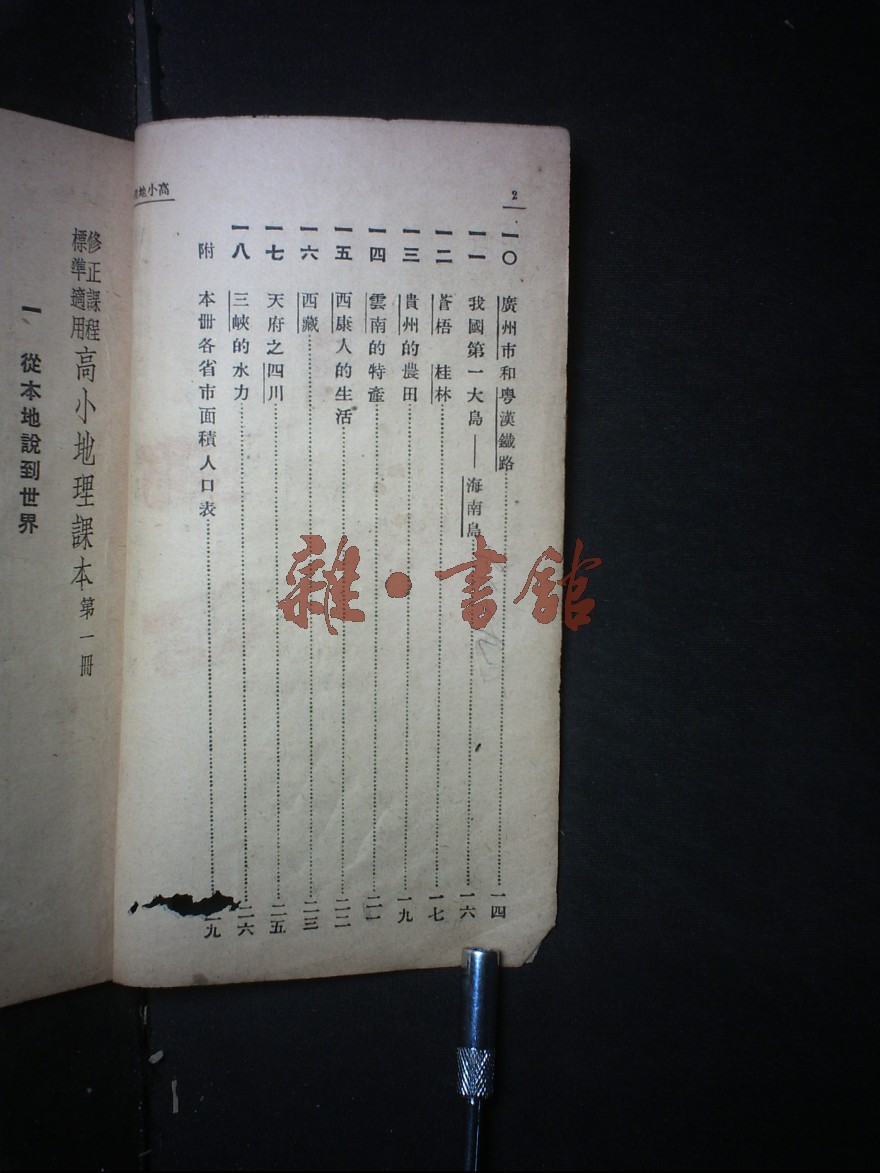 2
一〇 廣州市和粵漢鐵路 一四
一一 我國第一大島——海南島 一六
一二 蒼梧 桂林 一七
一三 貴州的農田 一九
一四 雲南的特產 二一
一五 西康人的生活 二二
一六 西藏 二三
一七 天府之四川 二五
一八 三峽的水力 二六
附 本冊各省市面積人口表 九
高小地
修正課程標準適用 高小地理課本 第一冊
一 從本地說到世界
雜·書館